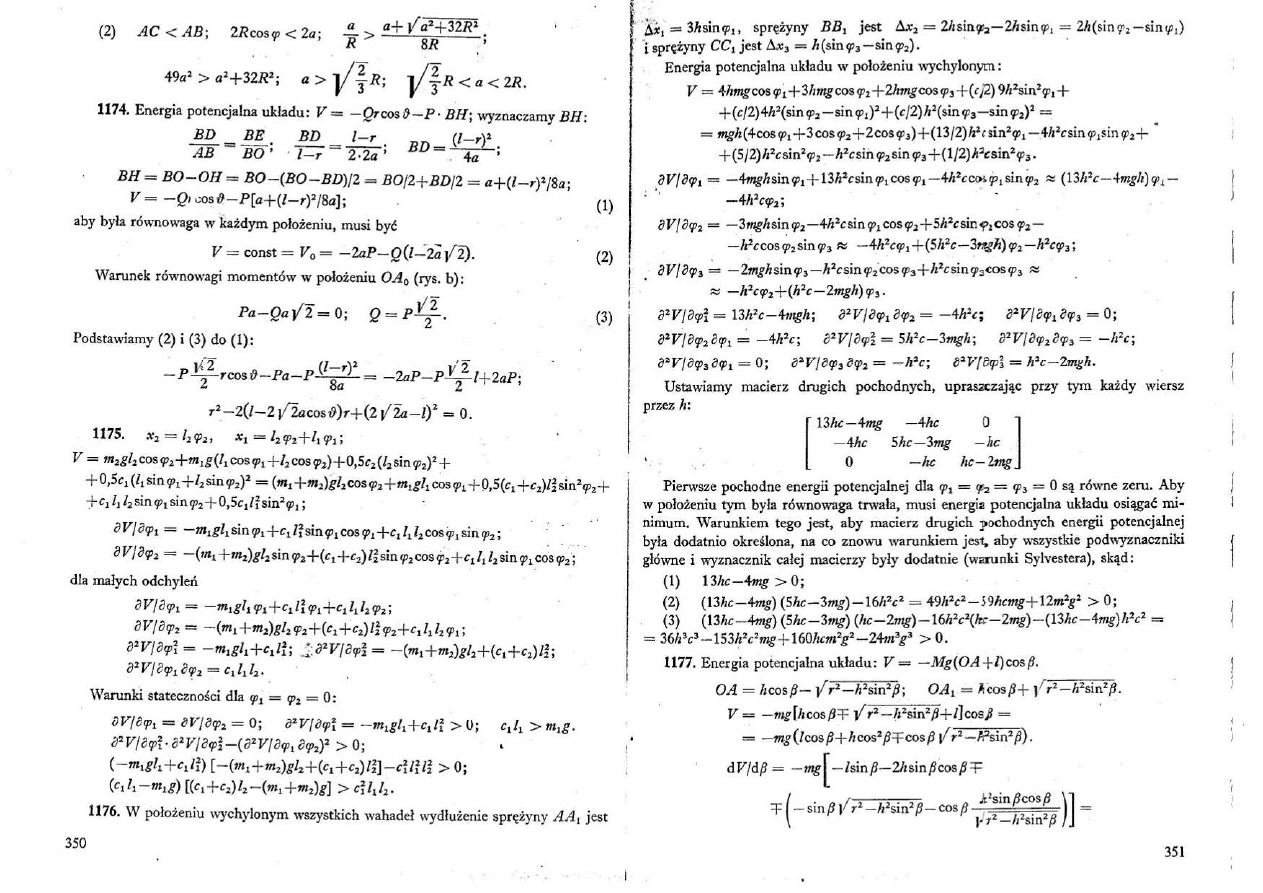 (2) AC < AB; 2Rcos φ < 2a; a/R > (a+√(a²+32R²))/8R ;
49a² > a²+32R²; a > √(2/3) R; √(2/3) R < a < 2R.
1174. Energia potencjalna układu: V = −Qr cos ϑ−P · BH; wyznaczamy BH:
BD/AB = BE/BO ; BD/(l−r) = (l−r)/(2·2a) ; BD = (l−r)²/4a ;
BH = BO−OH = BO−(BO−BD)/2 = BO/2+BD/2 = a+(l−r)²/8a;
V = −Qr cos ϑ−P[a+(l−r)²/8a]; (1)
aby była równowaga w każdym położeniu, musi być
V = const = V₀ = −2aP−Q(l−2a√2). (2)
Warunek równowagi momentów w położeniu OA₀ (rys. b):
Pa−Qa√2 = 0; Q = P √2/2 . (3)
Podstawiamy (2) i (3) do (1):
−P (√2/2) r cos ϑ−Pa−P (l−r)²/8a = −2aP−P (√2/2) l+2aP;
r²−2(l−2√2a cos ϑ)r+(2√2a−l)² = 0.
1175. x₂ = l₂φ₂, x₁ = l₂φ₂+l₁φ₁;
V = m₂gl₂cos φ₂+m₁g(l₁cos φ₁+l₂cos φ₂)+0,5c₂(l₂sin φ₂)²+
+0,5c₁(l₁sin φ₁+l₂sin φ₂)² = (m₁+m₂)gl₂cos φ₂+m₁gl₁cos φ₁+0,5(c₁+c₂)l₂²sin²φ₂+
+c₁l₁l₂sin φ₁sin φ₂+0,5c₁l₁²sin²φ₁;
∂V/∂φ₁ = −m₁gl₁sin φ₁+c₁l₁²sin φ₁cos φ₁+c₁l₁l₂cos φ₁sin φ₂;
∂V/∂φ₂ = −(m₁+m₂)gl₂sin φ₂+(c₁+c₂)l₂²sin φ₂cos φ₂+c₁l₁l₂sin φ₁cos φ₂;
dla małych odchyleń
∂V/∂φ₁ = −m₁gl₁φ₁+c₁l₁²φ₁+c₁l₁l₂φ₂;
∂V/∂φ₂ = −(m₁+m₂)gl₂φ₂+(c₁+c₂)l₂²φ₂+c₁l₁l₂φ₁;
∂²V/∂φ₁² = −m₁gl₁+c₁l₁²; ∂²V/∂φ₂² = −(m₁+m₂)gl₂+(c₁+c₂)l₂²;
∂²V/∂φ₁∂φ₂ = c₁l₁l₂.
Warunki stateczności dla φ₁ = φ₂ = 0:
∂V/∂φ₁ = ∂V/∂φ₂ = 0; ∂²V/∂φ₁² = −m₁gl₁+c₁l₁² > 0; c₁l₁ > m₁g.
∂²V/∂φ₁²·∂²V/∂φ₂²−(∂²V/∂φ₁∂φ₂)² > 0;
(−m₁gl₁+c₁l₁²) [−(m₁+m₂)gl₂+(c₁+c₂)l₂²]−c₁²l₁²l₂² > 0;
(c₁l₁−m₁g) [(c₁+c₂)l₂−(m₁+m₂)g] > c₁²l₁l₂.
1176. W położeniu wychylonym wszystkich wahadeł wydłużenie sprężyny AA₁ jest
350
Δx₁ = 3h sin φ₁, sprężyny BB₁ jest Δx₂ = 2h sin φ₂−2h sin φ₁ = 2h(sin φ₂−sin φ₁)
i sprężyny CC₁ jest Δx₃ = h(sin φ₃−sin φ₂).
Energia potencjalna układu w położeniu wychylonym:
V = 4hmg cos φ₁+3hmg cos φ₂+2hmg cos φ₃+(c/2) 9h²sin²φ₁+
+(c/2)4h²(sin φ₂−sin φ₁)²+(c/2)h²(sin φ₃−sin φ₂)² =
= mgh(4cos φ₁+3cos φ₂+2cos φ₃)+(13/2)h²c sin²φ₁−4h²c sin φ₁sin φ₂+
+(5/2)h²c sin²φ₂−h²c sin φ₂sin φ₃+(1/2)h²c sin²φ₃.
∂V/∂φ₁ = −4mgh sin φ₁+13h²c sin φ₁cos φ₁−4h²c cos φ₁sin φ₂ ≈ (13h²c−4mgh)φ₁−
−4h²cφ₂;
∂V/∂φ₂ = −3mgh sin φ₂−4h²c sin φ₁cos φ₂+5h²c sin φ₂cos φ₂−
−h²c cos φ₂sin φ₃ ≈ −4h²cφ₁+(5h²c−3mgh)φ₂−h²cφ₃;
∂V/∂φ₃ = −2mgh sin φ₃−h²c sin φ₂cos φ₃+h²c sin φ₃cos φ₃ ≈
≈ −h²cφ₂+(h²c−2mgh)φ₃.
∂²V/∂φ₁² = 13h²c−4mgh; ∂²V/∂φ₁∂φ₂ = −4h²c; ∂²V/∂φ₁∂φ₃ = 0;
∂²V/∂φ₂∂φ₁ = −4h²c; ∂²V/∂φ₂² = 5h²c−3mgh; ∂²V/∂φ₂∂φ₃ = −h²c;
∂²V/∂φ₃∂φ₁ = 0; ∂²V/∂φ₃∂φ₂ = −h²c; ∂²V/∂φ₃² = h²c−2mgh.
Ustawiamy macierz drugich pochodnych, upraszczając przy tym każdy wiersz
przez h:
[ 13hc−4mg −4hc 0 ]
[ −4hc 5hc−3mg −hc ]
[ 0 −hc hc−2mg ]
Pierwsze pochodne energii potencjalnej dla φ₁ = φ₂ = φ₃ = 0 są równe zeru. Aby
w położeniu tym była równowaga trwała, musi energia potencjalna układu osiągać mi-
nimum. Warunkiem tego jest, aby macierz drugich pochodnych energii potencjalnej
była dodatnio określona, na co znowu warunkiem jest, aby wszystkie podwyznaczniki
główne i wyznacznik całej macierzy były dodatnie (warunki Sylvestera), skąd:
(1) 13hc−4mg > 0;
(2) (13hc−4mg) (5hc−3mg)−16h²c² = 49h²c²−59hcmg+12m²g² > 0;
(3) (13hc−4mg) (5hc−3mg) (hc−2mg)−16h²c²(hc−2mg)−(13hc−4mg)h²c² =
= 36h³c³−153h²c²mg+160hcm²g²−24m³g³ > 0.
1177. Energia potencjalna układu: V = −Mg(OA+l) cos β.
OA = h cos β−√(r²−h²sin²β); OA₁ = h cos β+√(r²−h²sin²β).
V = −mg[h cos β∓√(r²−h²sin²β)+l] cos β =
= −mg(l cos β+h cos²β∓cos β√(r²−h²sin²β)).
dV/dβ = −mg[−l sin β−2h sin β cos β∓
∓(−sin β√(r²−h²sin²β)−cos β h²sin β cos β/√(r²−h²sin²β))] =
351